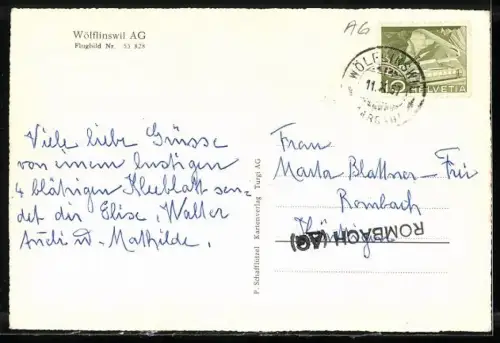 Wölflinswil AG
Flugbild Nr. 53 828
AG
WÖLFLINSWIL
11.X.57
(AARGAU)
HELVETIA
Viele liebe Grüsse
von einem lustigen
4 blätrigen Kleeblatt sen-
det dir Elise, Walter
Trudi u. Mathilde.
P. Schaffützel Kartenverlag Turgi AG
Frau
Marta Blattner-Frei
Rombach
ROMBACH (AG)